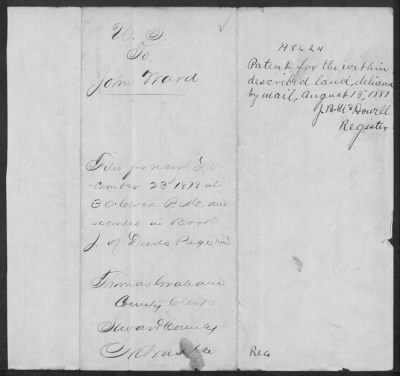 U. S.
To
John Ward
Filed for record De-
cember 23d 1878 at
3 O'clock P. M. and
recorded in Book
J. of Deeds Page
Thomas Graham
County Clerk
Seward County
Nebraska
H 8624
Patent for the within
described land, delivered
by mail, August 13, 1878
J. B. McDowell
Register
Reg